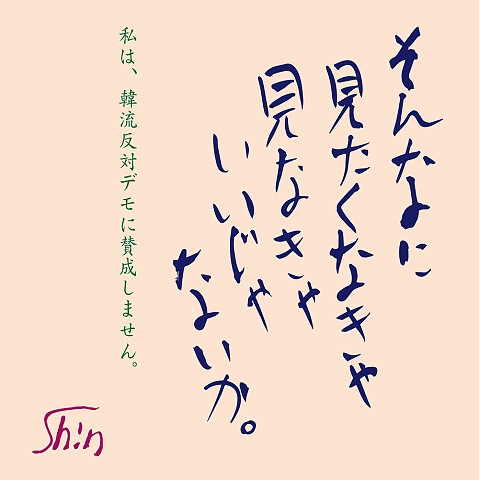 そんなに
見たくなきゃ
見なきゃ
いいじゃ
ないか。
私は、韓流反対デモに賛成しません。
Sh!n